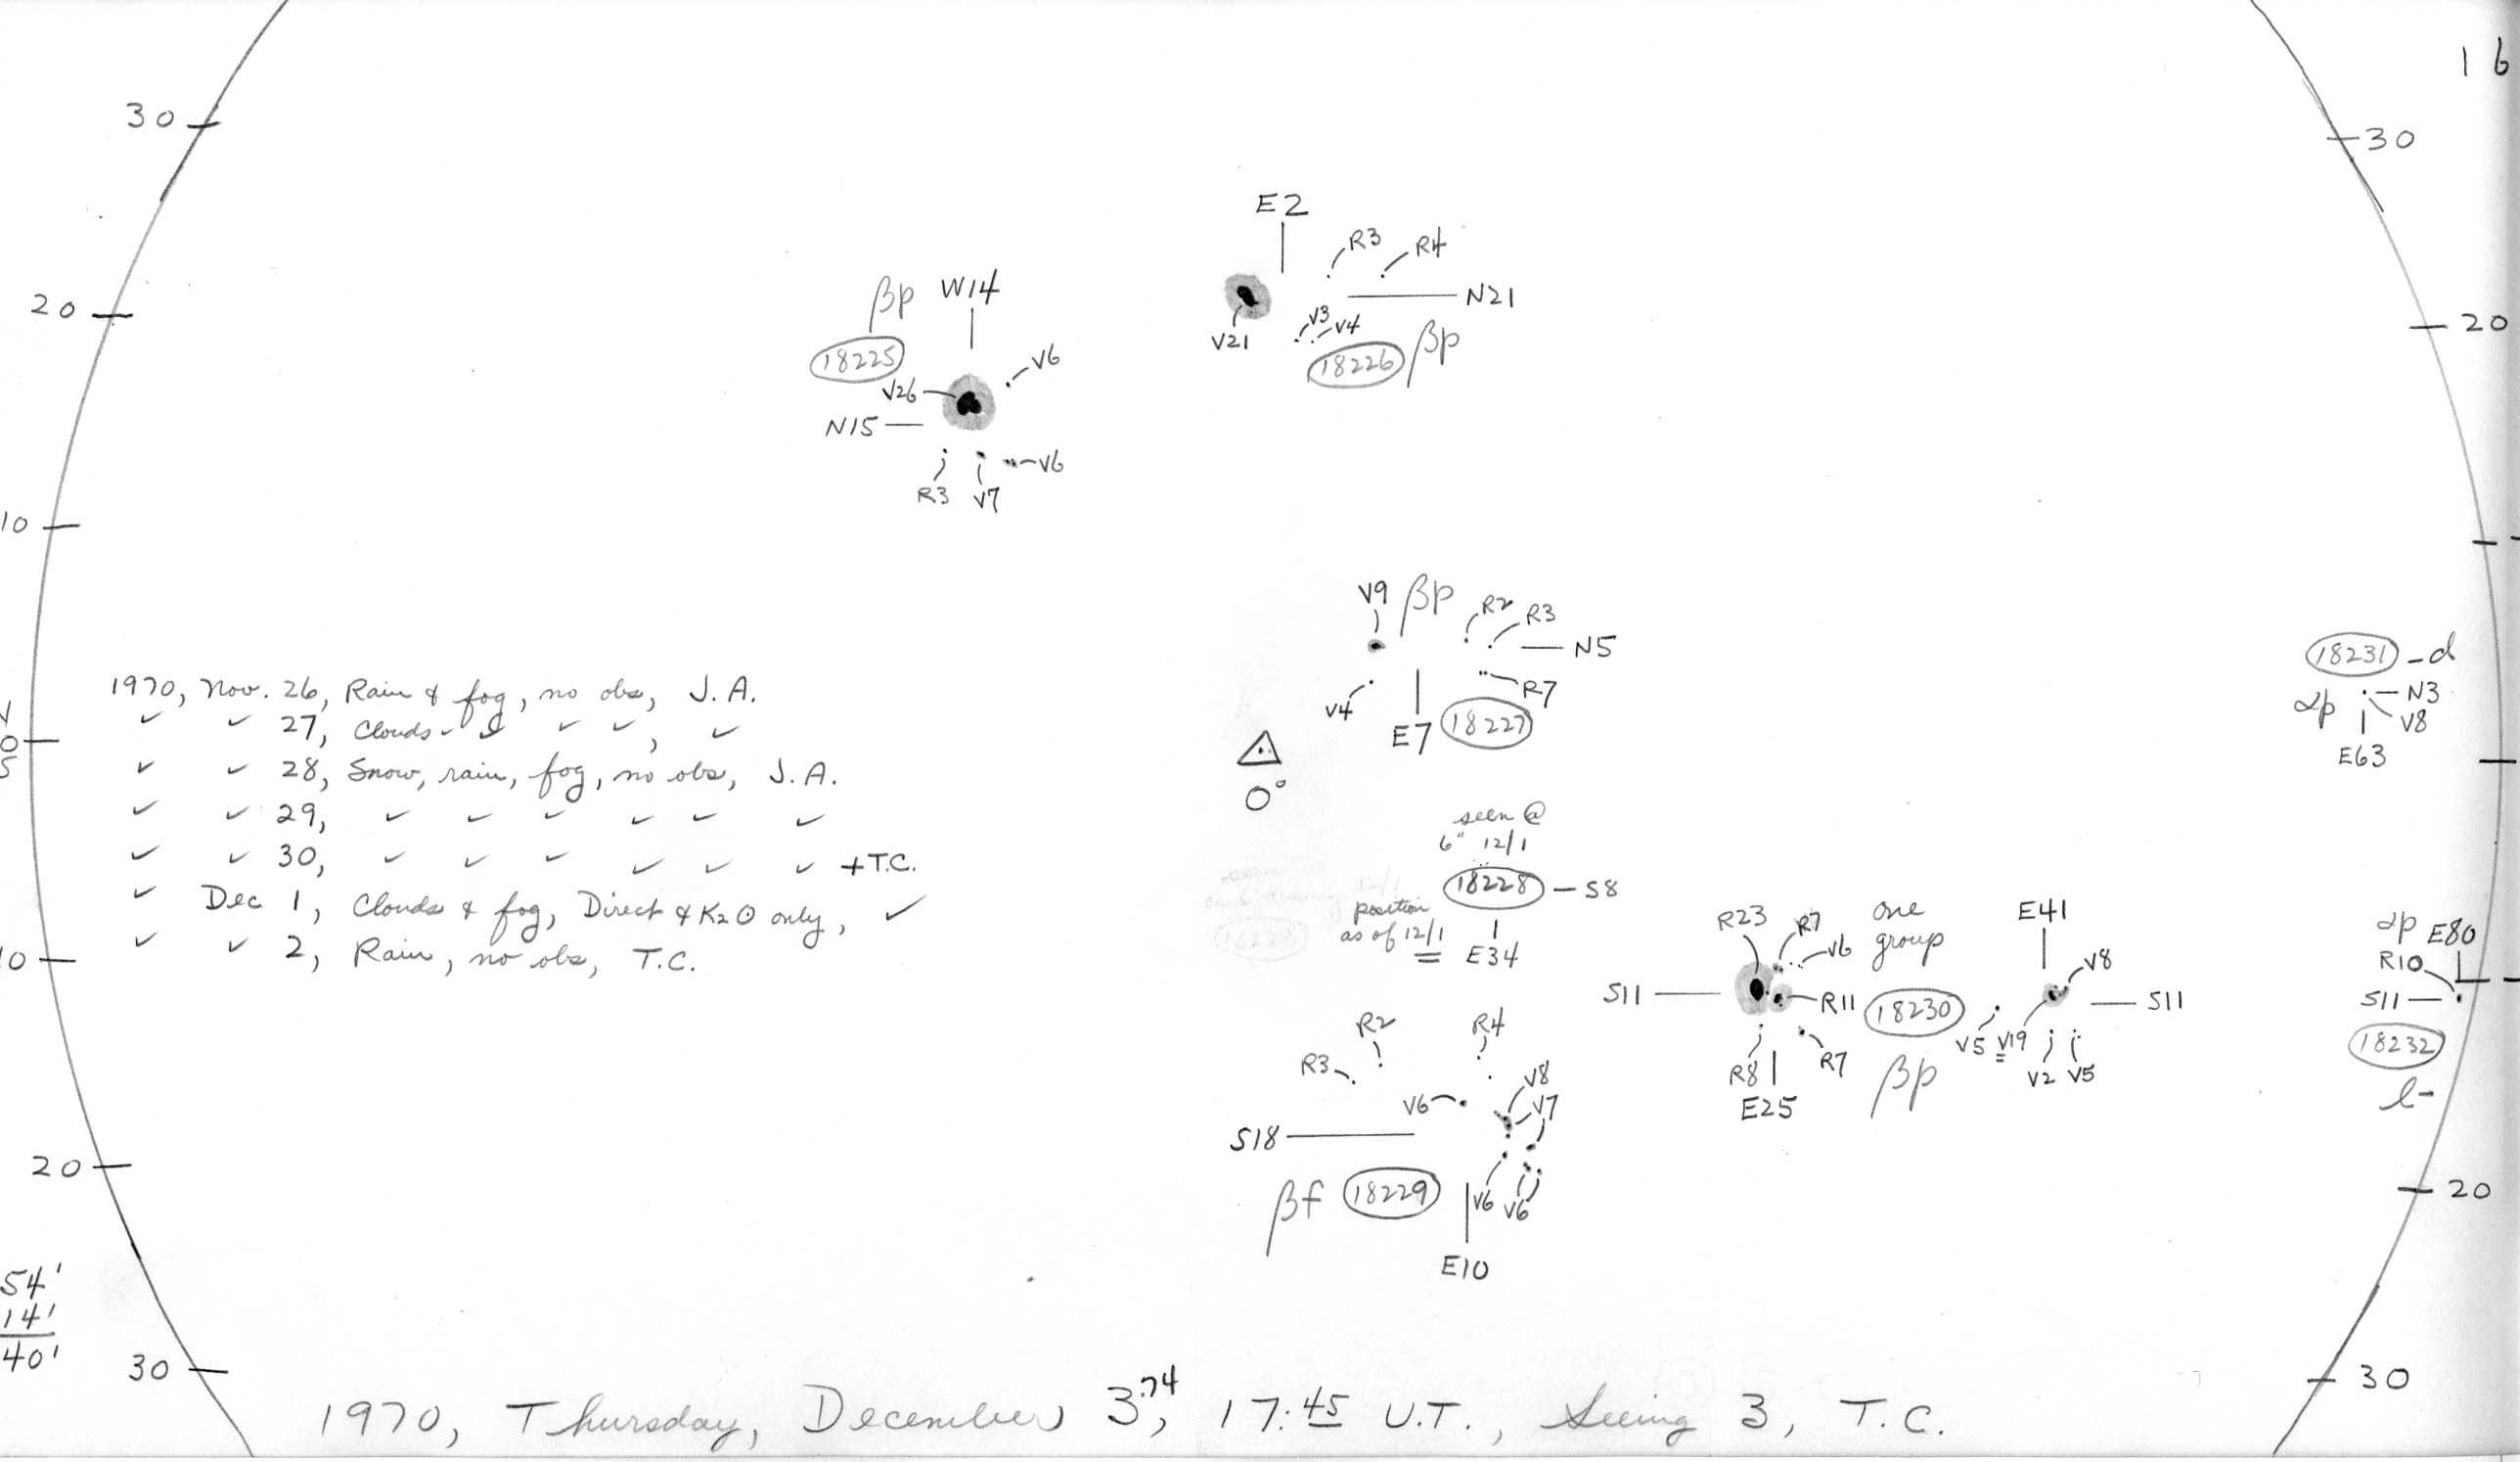 16
30
30
E2
R3
R4
βp W14
N21
20
V3
V4
V21
20
18225
V6
18226 βp
V26
N15
V6
R3 V7
10
V9 βp R2 R3
N5
R7
V4
E7 18227
18231 - d
N3
αp
V8
E63
0°
1970, Nov. 26, Rain & fog, no obs, J.A.
✓ ✓ 27, Clouds ✓ ✓ ✓ ✓, ✓
✓ ✓ 28, Snow, rain, fog, no obs, J.A.
✓ ✓ 29, ✓ ✓ ✓ ✓ ✓ ✓
✓ ✓ 30, ✓ ✓ ✓ ✓ ✓ ✓ +T.C.
✓ Dec 1, Clouds & fog, Direct & K2⊙ only, ✓
✓ ✓ 2, Rain, no obs, T.C.
0
S
seen @
6" 12/1
18228 - S8
position
as of 12/1
E34
10
R23 R7 V6
one
group
E41
V8
S11
R11
18230
S11
V5 V19
V2 V5
R8 R7
βp
E25
αp E80
R10
S11
18232
l-
R2 R4
R3
V6
V8
V7
S18
βf 18229
V6 V6
E10
20
20
54'
14'
40'
30
30
1970, Thursday, December 3.74, 17:45 U.T., Seeing 3, T.C.